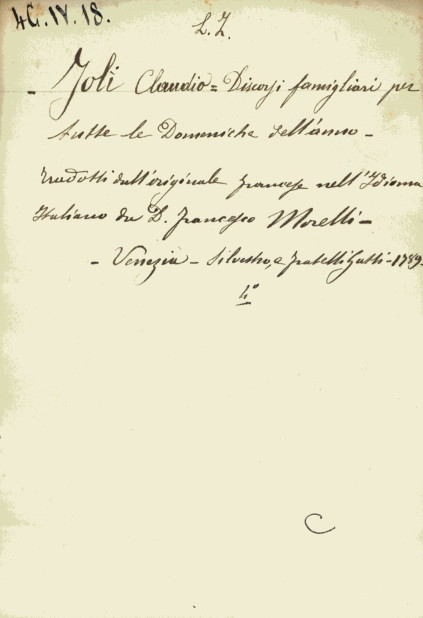 4G.IV.18.
L.Z.
- Joli Claudio = Discorsi famigliari per
tutte le Domeniche dell'anno -
tradotti dall'originale francese nell'Idioma
Italiano da D. Francesco Morelli -
- Venezia - Silvestro, e fratelli Gatti - 1789 -
4°
C